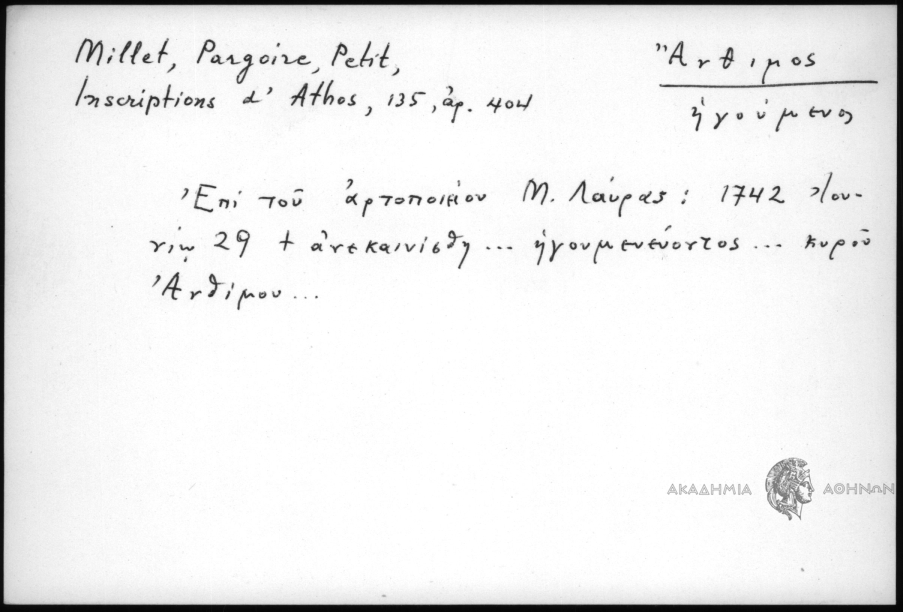 Millet, Pargoire, Petit,
Inscriptions d' Athos, 135, ἀρ. 404
Ἄνθιμος
ἡγούμενος
Ἐπὶ τοῦ ἀρτοποιείου Μ. Λαύρας: 1742 Ἰου-
νίῳ 29 + ἀνεκαινίσθη... ἡγουμενεύοντος... κυροῦ
Ἀνθίμου...
ΑΚΑΔΗΜΙΑ ΑΘΗΝΩΝ